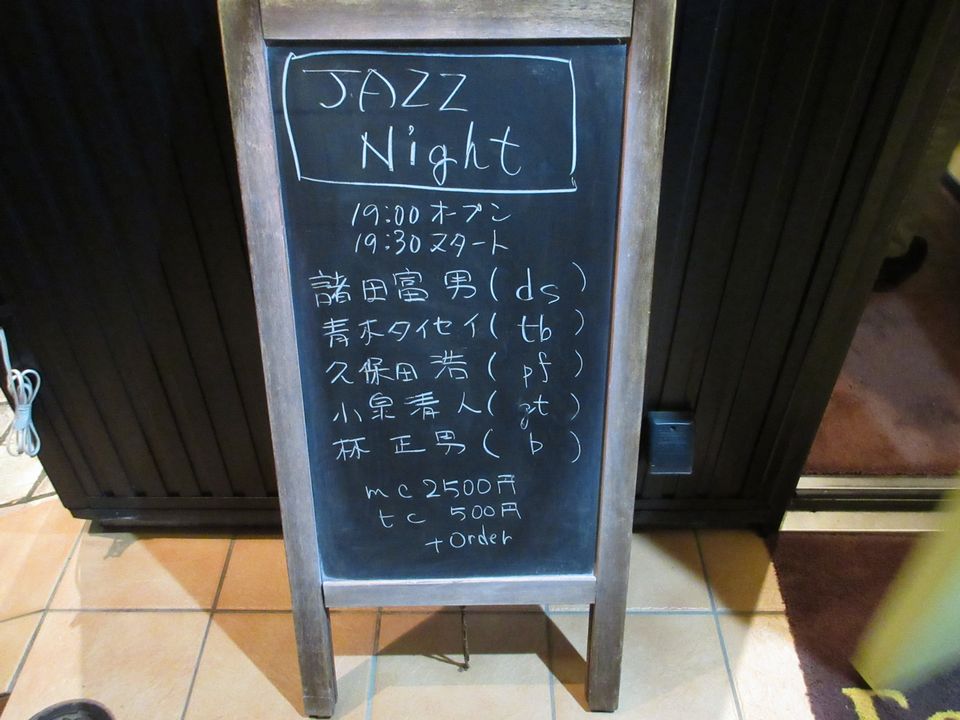 JAZZ
Night
19:00 オープン
19:30 スタート
諸田富男(ds)
青木タイセイ(tb)
久保田浩(pf)
小泉清人(gt)
林正男(b)
mc 2500円
tc 500円
+Order